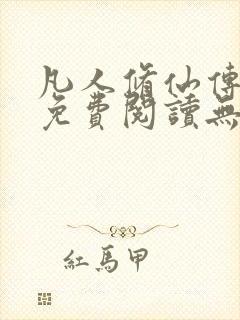 凡人脩仙傳
免費閱讀無
紅馬甲